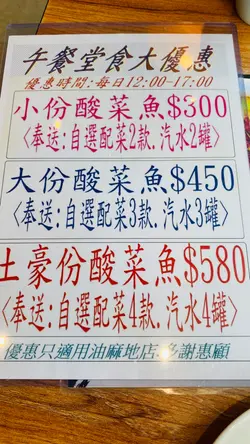 午餐堂食大優惠
優惠時間:每日12:00-17:00
小份酸菜魚$300
<奉送:自選配菜2款.汽水2罐>
大份酸菜魚$450
<奉送:自選配菜3款.汽水3罐>
土豪份酸菜魚$580
<奉送:自選配菜4款.汽水4罐>
優惠只適用油麻地店.多謝惠顧